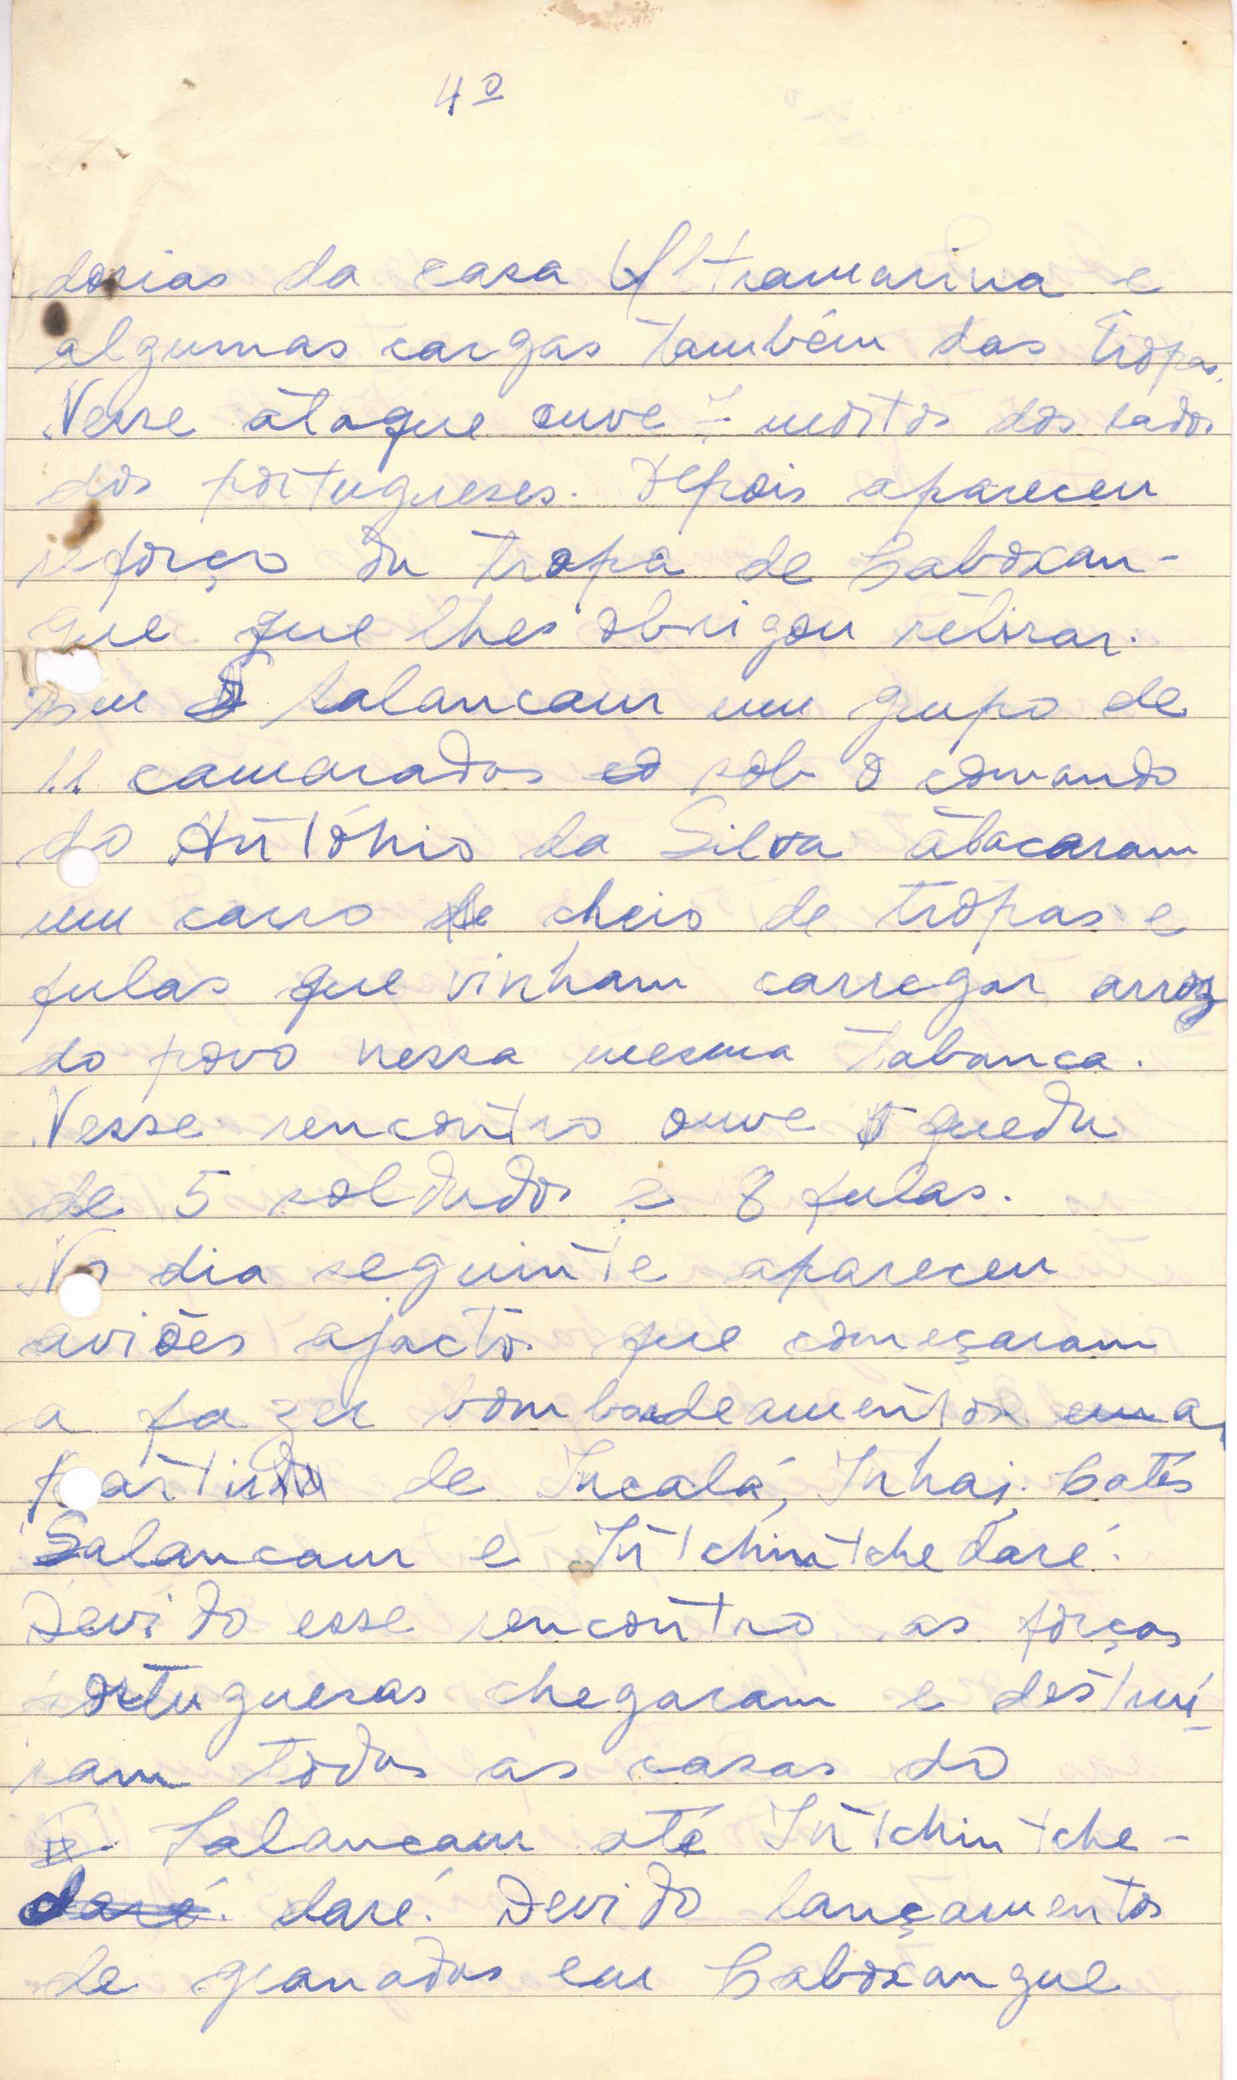 4º
dorias da casa Ultramarina e
algumas cargas também das tropas.
Nesse átaque ouve 7 mortos dos lados
dos portugueses. Depois apareceu
reforço da tropa de Caboxan-
gue que lhes obrigou retirar.
Em Salancaur um grupo de
11 camaradas sob o comando
do António da Silva átacaram
um carro cheio de tropas e
fulas que vinham carregar arroz
do povo nessa mesma tabanca.
Nesse rencontro ouve queda
de 5 soldados e 8 fulas.
No dia seguinte apareceu
aviões ajacto que começaram
a fazer bombardeamentos a
partir de Incalá, Inhai, Catés
Salancaur e Intchintchedaré.
Devido esse rencontro as forças
portuguesas chegaram e destruí-
ram todas as casas do
Salancaur até Intchintche-
daré. Devido lançamentos
de granadas em Caboxangue